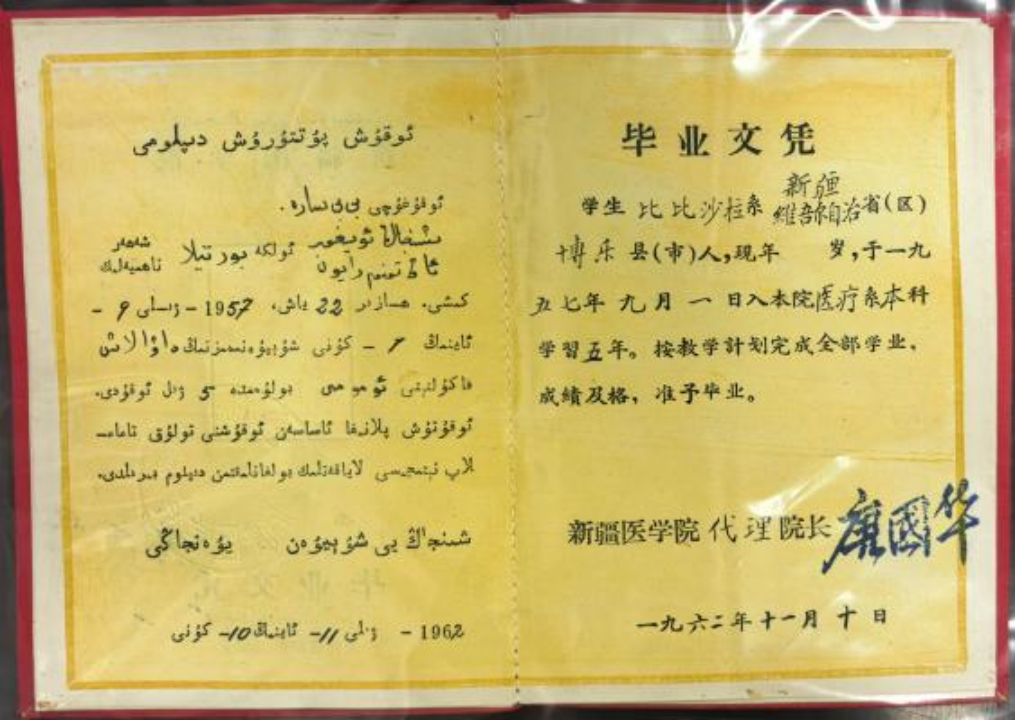 ئوقۇش پۈتتۈرۈش دىپلومى
ئوقۇغۇچى بىبىسارە.
ئولكە بورتيلا شەھەر
ناھىيەلىك
كىشى. ھازىر 22 ياش، 1957 - يىلى 9 -
ئاينىڭ 1 - كۈنى شۇيۈەنىمىزنىڭ داۋالاش
فاكۇلتېتى ئومومى بولۈمىدە 5 يىل ئوقۇدى.
ئوقۇتۇش پلانىغا ئاساسەن ئوقۇشنى تولۇق تاما-
لاپ نېتىجىسى لاياقەتلىك بولغانلىقتىن دىپلوم بېرىلدى.
شىنجاڭ يى شۇيۈەن يۈەنجاڭى
1962 - يىلى 11- ئاينىڭ 10- كۈنى
毕业文凭
学生 比比沙拉系 新疆
維吾尔自治省(区)
博乐县(市)人,现年 岁,于一九
五七年九月一日入本院医疗系本科
学習五年。按教学計划完成全部学业,
成績及格,准予毕业。
新疆医学院代理院长 康國华
一九六二年十一月十日